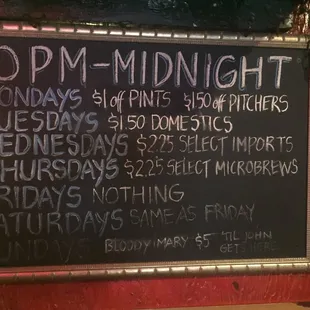 0 PM-MIDNIGHT
ONDAYS $1 off PINTS $1.50 off PITCHERS
UESDAYS $1.50 DOMESTICS
EDNESDAYS $2.25 SELECT IMPORTS
HURSDAYS $2.25 SELECT MICROBREWS
RIDAYS NOTHING
ATURDAYS SAME AS FRIDAY
UNDAYS BLOODY MARY $5 'TIL JOHN
GETS